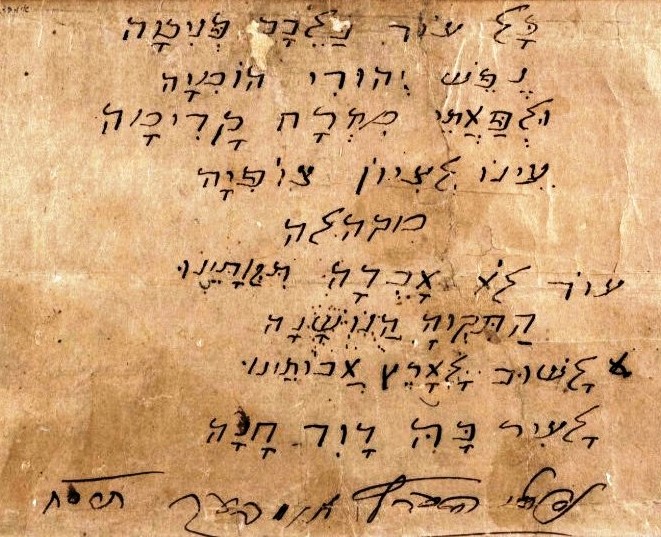 כל עוד בלבב פנימה
נפש יהודי הומיה
ולפאתי מזרח קדימה
עינו לציון צופיה
מוקהלה
עוד לא אבדה תקותינו
התקוה הנושנה
לשוב לארץ אבותינו
לעיר בה דוד חנה
נפתלי הערץ אימבער תרסח